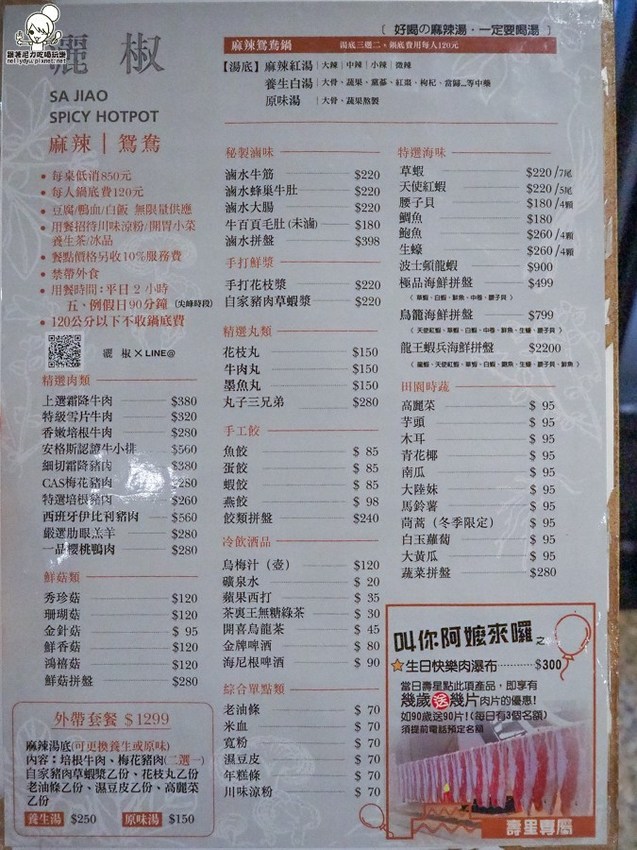 跟著尼力吃喝玩樂
nellydyu.pixnet.net
麗 椒
SA JIAO
SPICY HOTPOT
麻辣｜鴛鴦
• 每桌低消850元
• 每人鍋底費120元
• 豆腐/鴨血/白飯 無限量供應
• 用餐招待川味涼粉/開胃小菜
養生茶/冰品
• 餐點價格另收10%服務費
• 禁帶外食
• 用餐時間:平日２小時
五、例假日90分鐘 (尖峰時段)
• 120公分以下不收鍋底費
麗 椒×LINE@
精選肉類
上選霜降牛肉 $380
特級雪片牛肉 $320
香嫩培根牛肉 $280
安格斯認證牛小排 $560
細切霜降豬肉 $380
CAS梅花豬肉 $260
特選培根豬肉 $260
西班牙伊比利豬肉 $560
嚴選肋眼羔羊 $280
一品櫻桃鴨肉 $280
鮮菇類
秀珍菇 $120
珊瑚菇 $120
金針菇 $ 95
鮮香菇 $120
鴻禧菇 $120
鮮菇拼盤 $280
外帶套餐 $1299
麻辣湯底(可更換養生或原味)
內容：培根牛肉、梅花豬肉(二選一)
自家豬肉草蝦漿乙份、花枝丸乙份
老油條乙份、濕豆皮乙份、高麗菜
乙份
養生湯 $250 原味湯 $150
〔 好喝の麻辣湯．一定要喝湯 〕
麻辣鴛鴦鍋 湯底三選二、鍋底費用每人120元
【湯底】麻辣紅湯｜大辣｜中辣｜小辣｜微辣
養生白湯｜大骨、蔬果、黨蔘、紅棗、枸杞、當歸...等中藥
原味湯｜大骨、蔬果熬製
秘製滷味
滷水牛筋 $220
滷水蜂巢牛肚 $220
滷水大腸 $220
牛百頁毛肚(未滷) $180
滷水拼盤 $398
手打鮮漿
手打花枝漿 $220
自家豬肉草蝦漿 $220
精選丸類
花枝丸 $150
牛肉丸 $150
墨魚丸 $150
丸子三兄弟 $280
手工餃
魚餃 $ 85
蛋餃 $ 85
蝦餃 $ 85
燕餃 $ 98
餃類拼盤 $240
冷飲酒品
烏梅汁（壺） $120
礦泉水 $ 20
蘋果西打 $ 35
茶裏王無糖綠茶 $ 30
開喜烏龍茶 $ 45
金牌啤酒 $ 80
海尼根啤酒 $ 90
綜合單點類
老油條 $ 70
米血 $ 70
寬粉 $ 70
濕豆皮 $ 70
年糕條 $ 70
川味涼粉 $ 70
特選海味
草蝦 $220 /7尾
天使紅蝦 $220 /5尾
腰子貝 $180 /4顆
鯛魚 $180
鮑魚 $260 /4顆
生蠔 $260 /4顆
波士頓龍蝦 $900
極品海鮮拼盤 $499
烏龍海鮮拼盤 $799
龍王蝦兵海鮮拼盤 $2200
田園時蔬
高麗菜 $ 95
芋頭 $ 95
木耳 $ 95
青花椰 $ 95
南瓜 $ 95
大陸妹 $ 95
馬鈴薯 $ 95
茼蒿（冬季限定） $ 95
白玉蘿蔔 $ 95
大黃瓜 $ 95
蔬菜拼盤 $280
叫你阿嬤來囉之
生日快樂肉瀑布·········$300
當日壽星點此項產品，即享有
幾歲送幾片肉片的優惠!
如90歲送90片!(每日有3個名額)
須提前電話預定名額
壽星專屬